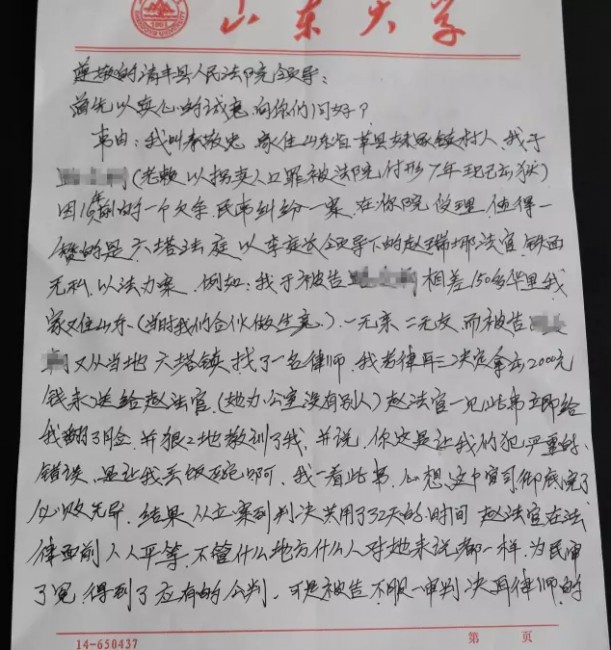 山东大学
尊敬的清丰县人民法院领导：
首先以衷心的诚意向你们问好？
事由：我叫秦敬忠 家住山东省莘县张家镇村人，我于
（老赖 以拐卖人口罪被法院付刑7年现已出狱）
因10年前的一个欠条民事纠纷一案，在你院受理，值得一
赞的是六塔法庭以李庭长领导下的赵瑞娜法官，铁面
无私，以法力案，例如：我于被告 相差150多华里我
家又住山东，（当时我们合伙做生意。）一无亲二无友，而被告
又从当地六塔镇找了一名律师，我考律再三决定拿出2000元
钱来送给赵法官（她办公室没有别人）赵法官一见此事立即给
我翻了脸，并狠狠地教训了我，并说，你这是让我们犯严重的
错误，是让我丢饭碗啊，我一看此事，心想，这个官司彻底完了
必败无异，结果从立案到判决共用了32天的时间 赵法官在法
律面前人人平等，不管什么地方什么人对她来说都一样，为民审
了冤，得到了应有的公判，可是被告不服一审判决再律师的
14-650437 第 页